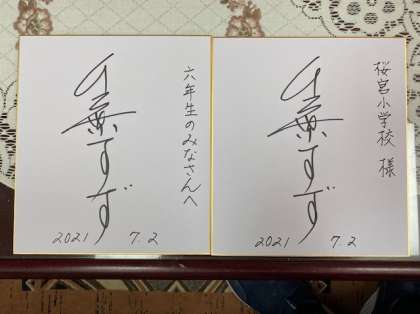 六年生のみなさんへ
千葉すず
2021 7.2
桜宮小学校 様
千葉すず
2021 7.2